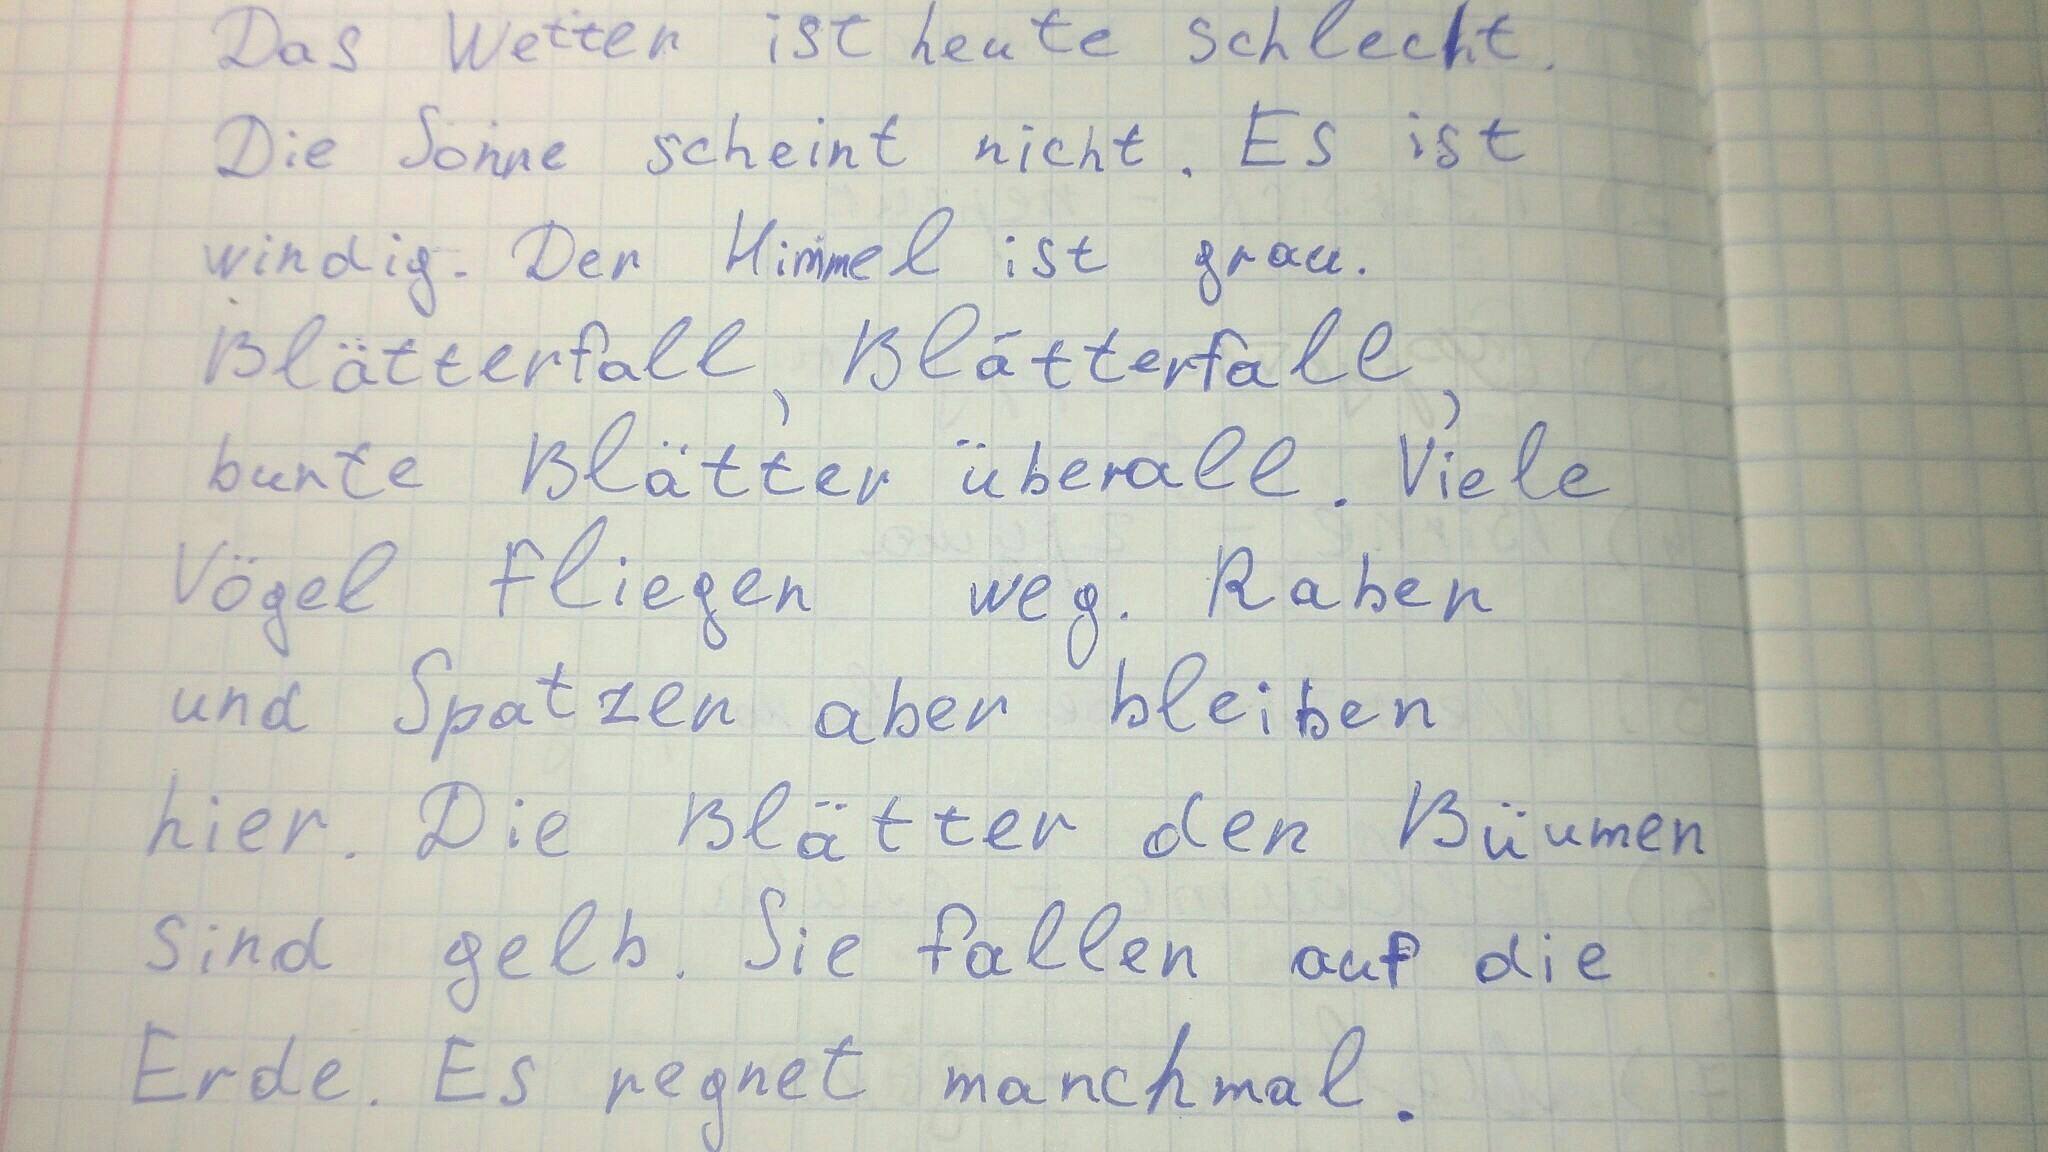 Das Wetter ist heute schlecht.
Die Sonne scheint nicht. Es ist
windig. Der Himmel ist grau.
Blätterfall, Blätterfall,
bunte Blätter überall. Viele
Vögel fliegen weg. Raben
und Spatzen aber bleiben
hier. Die Blätter den Büumen
sind gelb. Sie fallen auf die
Erde. Es regnet manchmal.